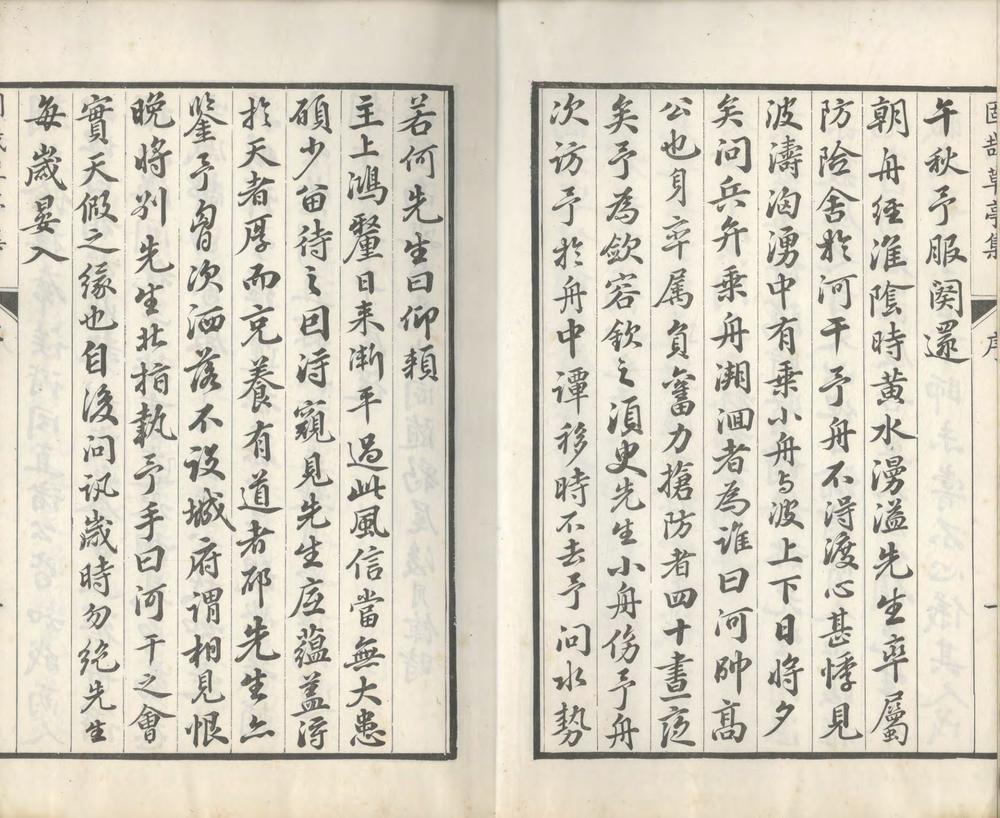 固哉草亭集
序
一
午秋予服闋還
朝舟經淮陰時黃水漫溢先生率屬
防險舍於河干予舟不得渡心甚悸見
波濤洶湧中有乘小舟與波上下日將夕
矣問兵弁乘舟溯洄者為誰曰河帥高
公也身率属負畚力搶防者四十晝夜
矣予為歛容欽之須臾先生小舟傍予舟
次访予於舟中譚移時不去予問水勢
若何先生曰仰賴
主上鴻釐日来漸平過此風信當無大患
碩少留待之因得窺見先生底蘊盖得
於天者厚而充養有道者邪先生亦
鉴予胷次洒落不设城府謂相見恨
晚將别先生北指執予手曰河干之會
實天假之緣也自後问訊歲時勿絶先生
每歲晏入